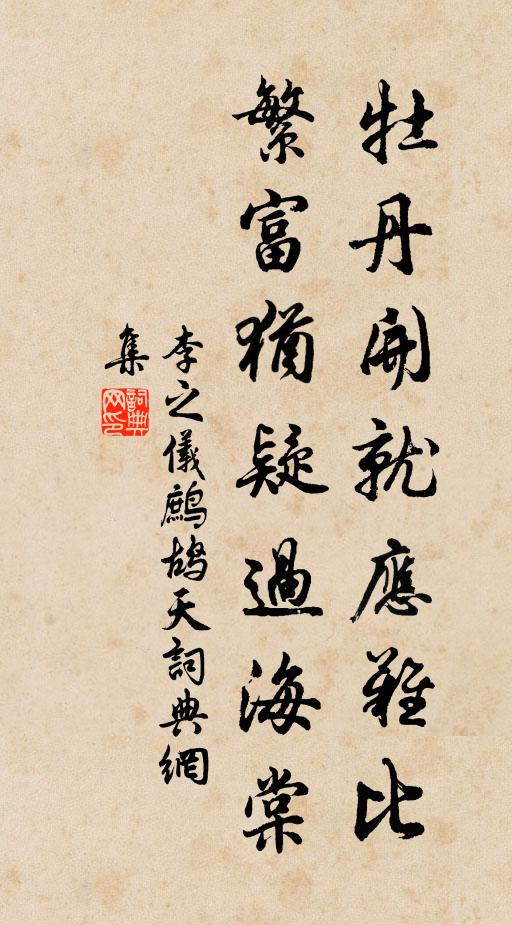 牡丹開就應難比
繁富猶疑過海棠
李之儀鷓鴣天詞典網
集
詞典網印